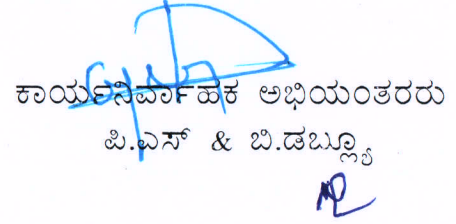 ಕಾರ್ಯನಿರ್ವಾಹಕ ಅಭಿಯಂತರರು
ಪಿ.ಎಸ್ & ಬಿ.ಡಬ್ಲ್ಯೂ